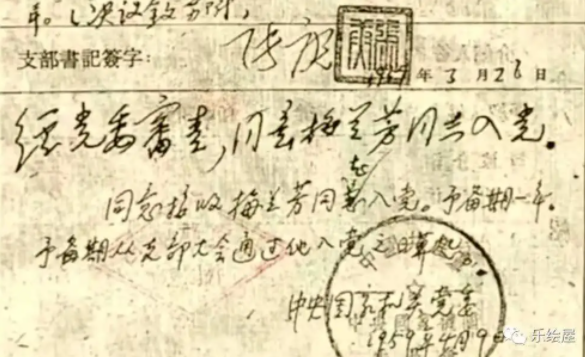 年。（决议文另附）
支部書記簽字：张庚
1959年3月26日
经党委審查，同意梅兰芳同志入党。
同意接收梅兰芳同志入党。予备期一年。
予备期从支部大会通过他入党之日算起。
中央国家机关党委
1959年4月9日
乐绘屋